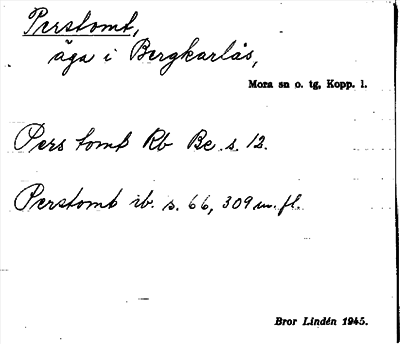 Perstomt,
äga i Bergkarlås,
Mora sn o. tg, Kopp. l.
Pers tomt Rb Be. s. 12.
Perstomt ib. s. 66, 309 m. fl.
Bror Lindén 1945.